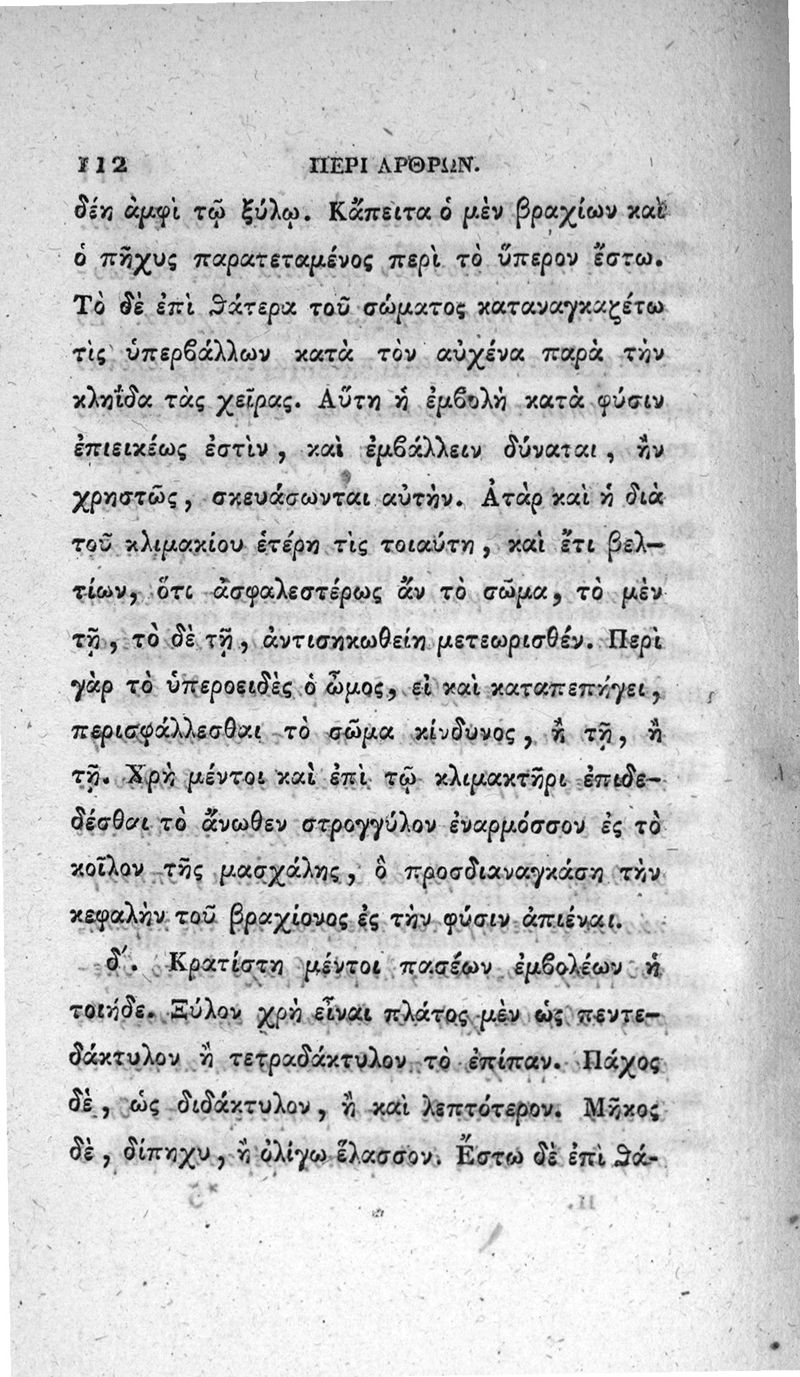 112 ΠΕΡΙ ΑΡΘΡΩΝ.
δέη ἀμφὶ τῷ ξύλῳ. Κἄπειτα ὁ μὲν βραχίων καὶ
ὁ πῆχυς παρατεταμένος περὶ τὸ ὕπερον ἔστω.
Τὸ δὲ ἐπὶ ϑάτερα τοῦ σώματος καταναγκαζέτω
τὶς ὑπερϐάλλων κατὰ τὸν αὐχένα παρὰ τὴν
κληΐδα τὰς χεῖρας. Αὕτη ἡ ἐμϐολὴ κατὰ φύσιν
ἐπιεικέως ἐστὶν, καὶ ἐμϐάλλειν δύναται, ἢν
χρηστῶς, σκευάσωνται αὐτὴν. Ἀτὰρ καὶ ἡ διὰ
τοῦ κλιμακίου ἑτέρη τὶς τοιαύτη, καὶ ἔτι βελ–
τίων, ὅτι ἀσφαλεστέρως ἄν τὸ σῶμα, τὸ μὲν
τῇ, τὸ δὲ τῇ, ἀντισηκωθείη μετεωρισθέν. Περὶ
γὰρ τὸ ὑπεροειδὲς ὁ ὦμος, εἰ καὶ καταπεπήγει,
περισφάλλεσθαι τὸ σῶμα κίνδυνος, ἢ τῇ, ἢ
τῇ. Χρὴ μέντοι καὶ ἐπὶ τῷ κλιμακτῆρι ἐπιδε–
δέσθαι τὸ ἄνωθεν στρογγύλον ἐναρμόσσον ἐς τὸ
κοῖλον τῆς μασχάλης, ὃ προσδιαναγκάση τὴν
κεφαλὴν τοῦ βραχίονος ἐς τὴν φύσιν ἀπιέναι.
δʹ. Κρατίστη μέντοι πασέων ἐμϐολέων ἡ
τοιήδε. Ξύλον χρὴ εἶναι πλάτος μὲν ὡς πεντε–
δάκτυλον ἢ τετραδάκτυλον τὸ ἐπίπαν. Πάχος
δὲ, ὡς διδάκτυλον, ἢ καὶ λεπτότερον. Μῆκος
δὲ, δίπηχυ, ἢ ὀλίγω ἔλασσον. Ἔστω δὲ ἐπὶ ϑά-